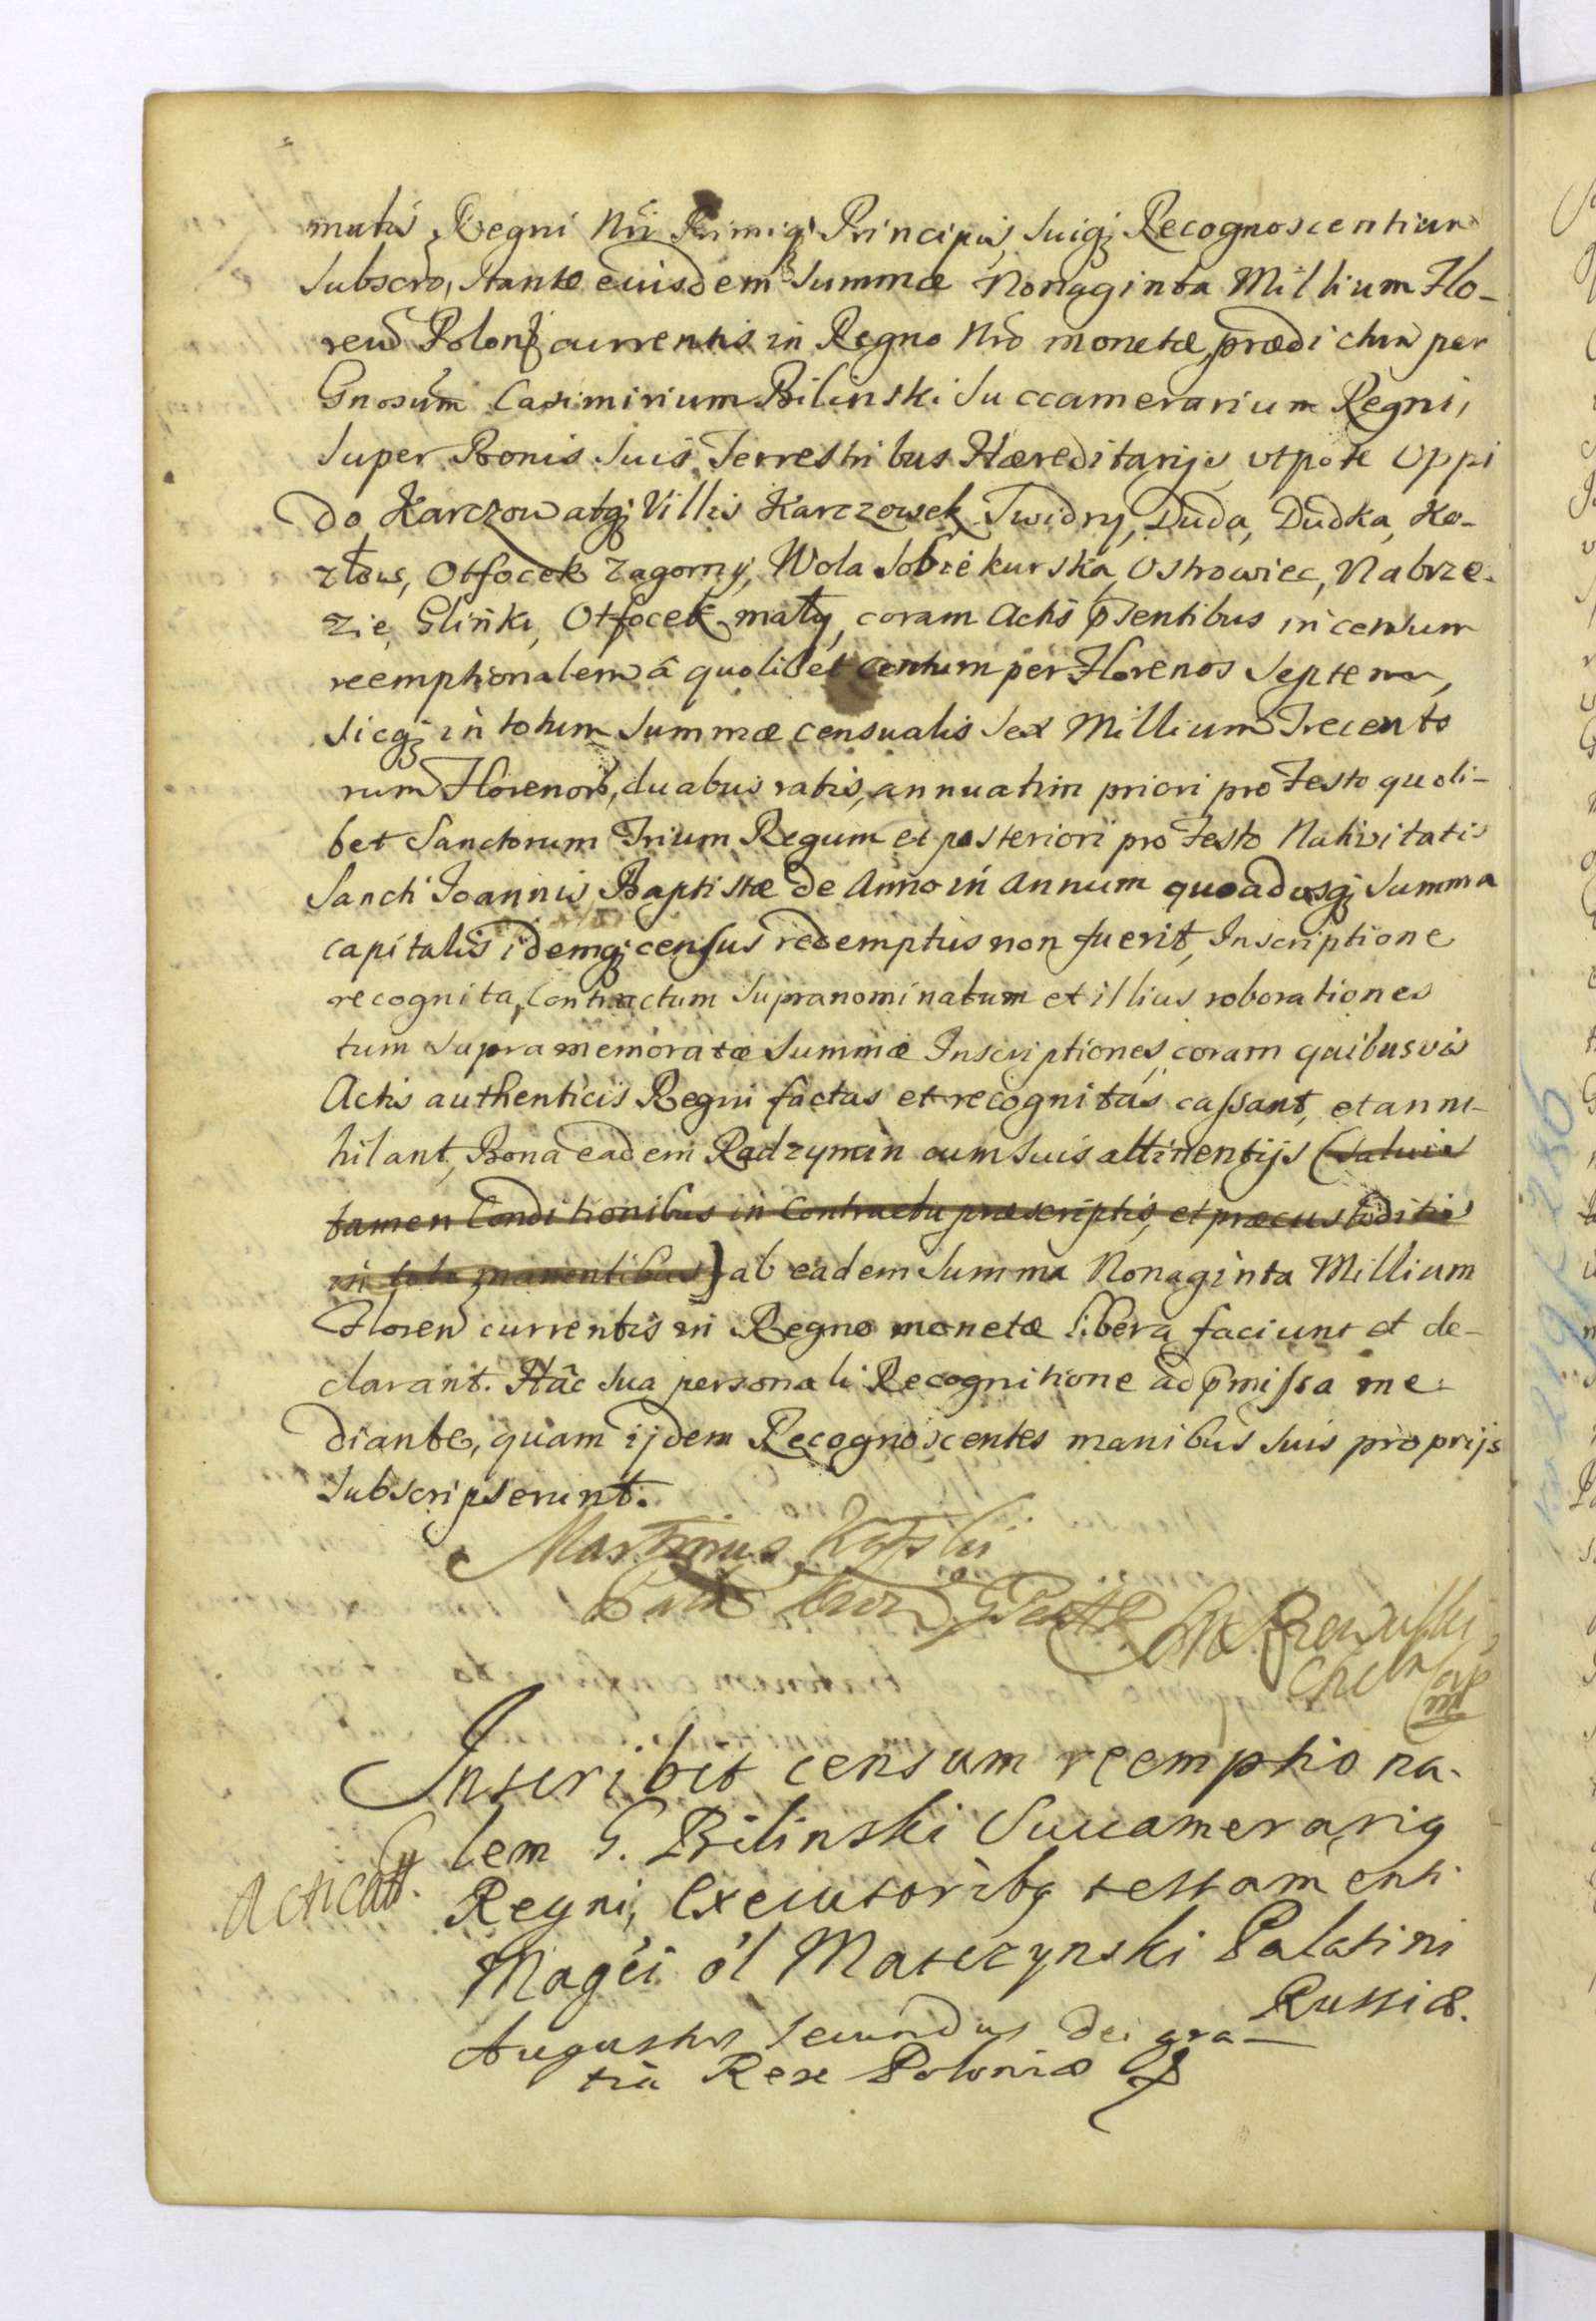 matis Regni Nri Primiqꝫ Principis, suiqꝫ Recognoscentium
subscro, stante eiusdem Summæ Nonaginta Millium Flo-
ren Polon currentis in Regno Nro monetæ, prædictum per
Gnosum Casimirium Bilinski Succamerarium Regni,
super Bonis suis Terrestribus Hæreditarijs, utpote Oppi
do Karczow atqꝫ Villis Karczowek Swidry, Duda, Dudka, Ko-
złow, Otfocek Zagorny, Wola Sobiekurska, Ostrowiec, Nabrze-
zie, Glinki, Otfocek mały, coram Actis pñtentibus in censum
reemptionalem â quolibet Centum per Florenos Septem,
sicqꝫ in totum Summæ censualis Sex Millium Trecento
rum Florenor, duabus ratis, annuatim priori pro Festo quoli-
bet Sanctorum Trium Regum et posteriori pro Festo Nativitatis
Sancti Joannis Baptistæ de Anno in Annum quoadusqꝫ Summa
capitalis idemqꝫ census redemptus non fuerit, Inscriptione
recognita, Contractum supranominatum et illius roborationes
tum supramemoratæ Summæ Inscriptiones, coram quibusvis
Actis authenticis Regni factas et recognitas cassant, et anni-
hilant, Bona eadem Radzymin cum suis attinentijs (salvis
tamen Conditionibus in Contractu præscriptis, et præcustoditis
in toto manentibus) ab eadem Summa Nonaginta Millium
Floren currentis in Regno monetæ libera faciunt et de-
clarant. Hâc sua personali Recognitione ad pmissa me-
diante, quam ijdem Recognoscentes manibus suis proprijs
subscripserunt.
Martinus Kątski
S Rzewuski
Chelm
mp
Inscribit censum reemptiona-
lem G. Bilinski Succamerarig
Regni, Executoribꝫ testamenti
Acticatt.
Magci ol Matczynski Palatini
Russiæ.
Augustus Secundus Dei gra-
tia Rex Poloniæ